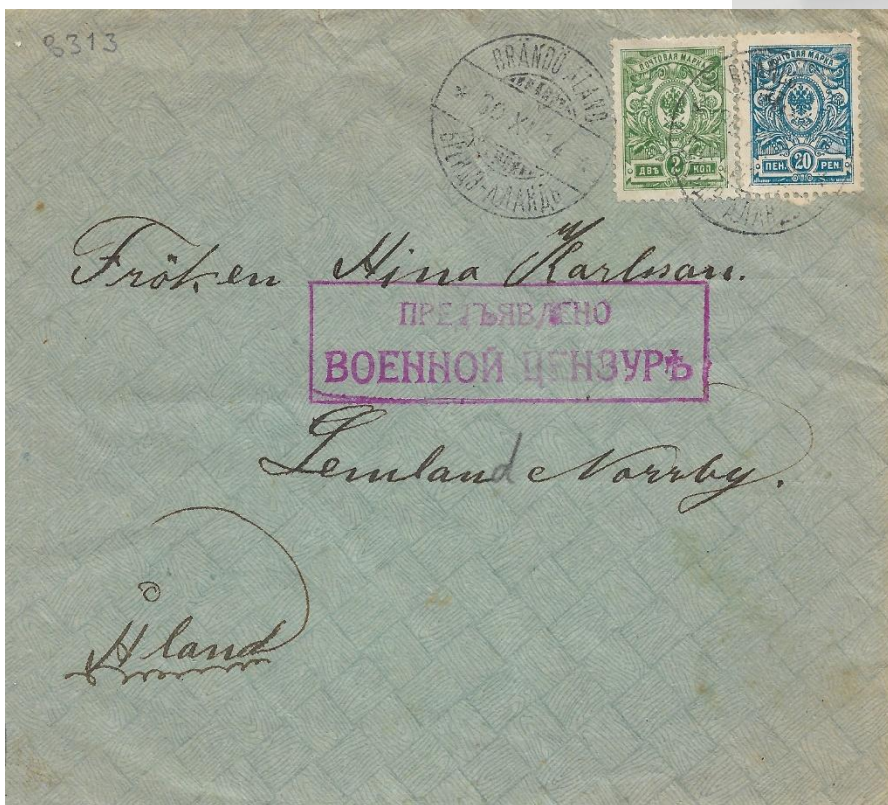 8313
BRÄNDÖ ÅLAND
30 XI 14
БРЕНДО-АЛАНДЪ
ПОЧТОВАЯ МАРКА
ДВѢ 2 КОП.
ПОЧТОВАЯ МАРКА
ПЕН. 20 PEN.
Fröken Hina Karlsson.
ПРЕДЪЯВЛЕНО
ВОЕННОЙ ЦЕНЗУРѢ
Lemland Norrby.
Åland